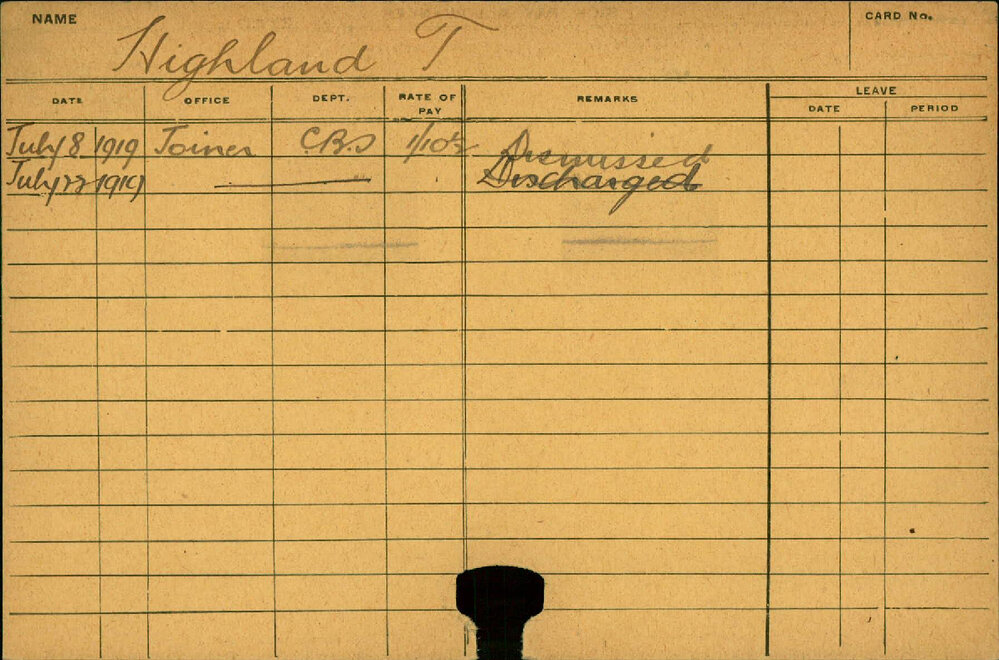 NAME
Highland T
CARD No.
DATE OFFICE DEPT. RATE OF PAY REMARKS LEAVE
DATE PERIOD
July 8 1919 Joiner C.B.S 1/10½ Dismissed
July 22 1919 Discharged